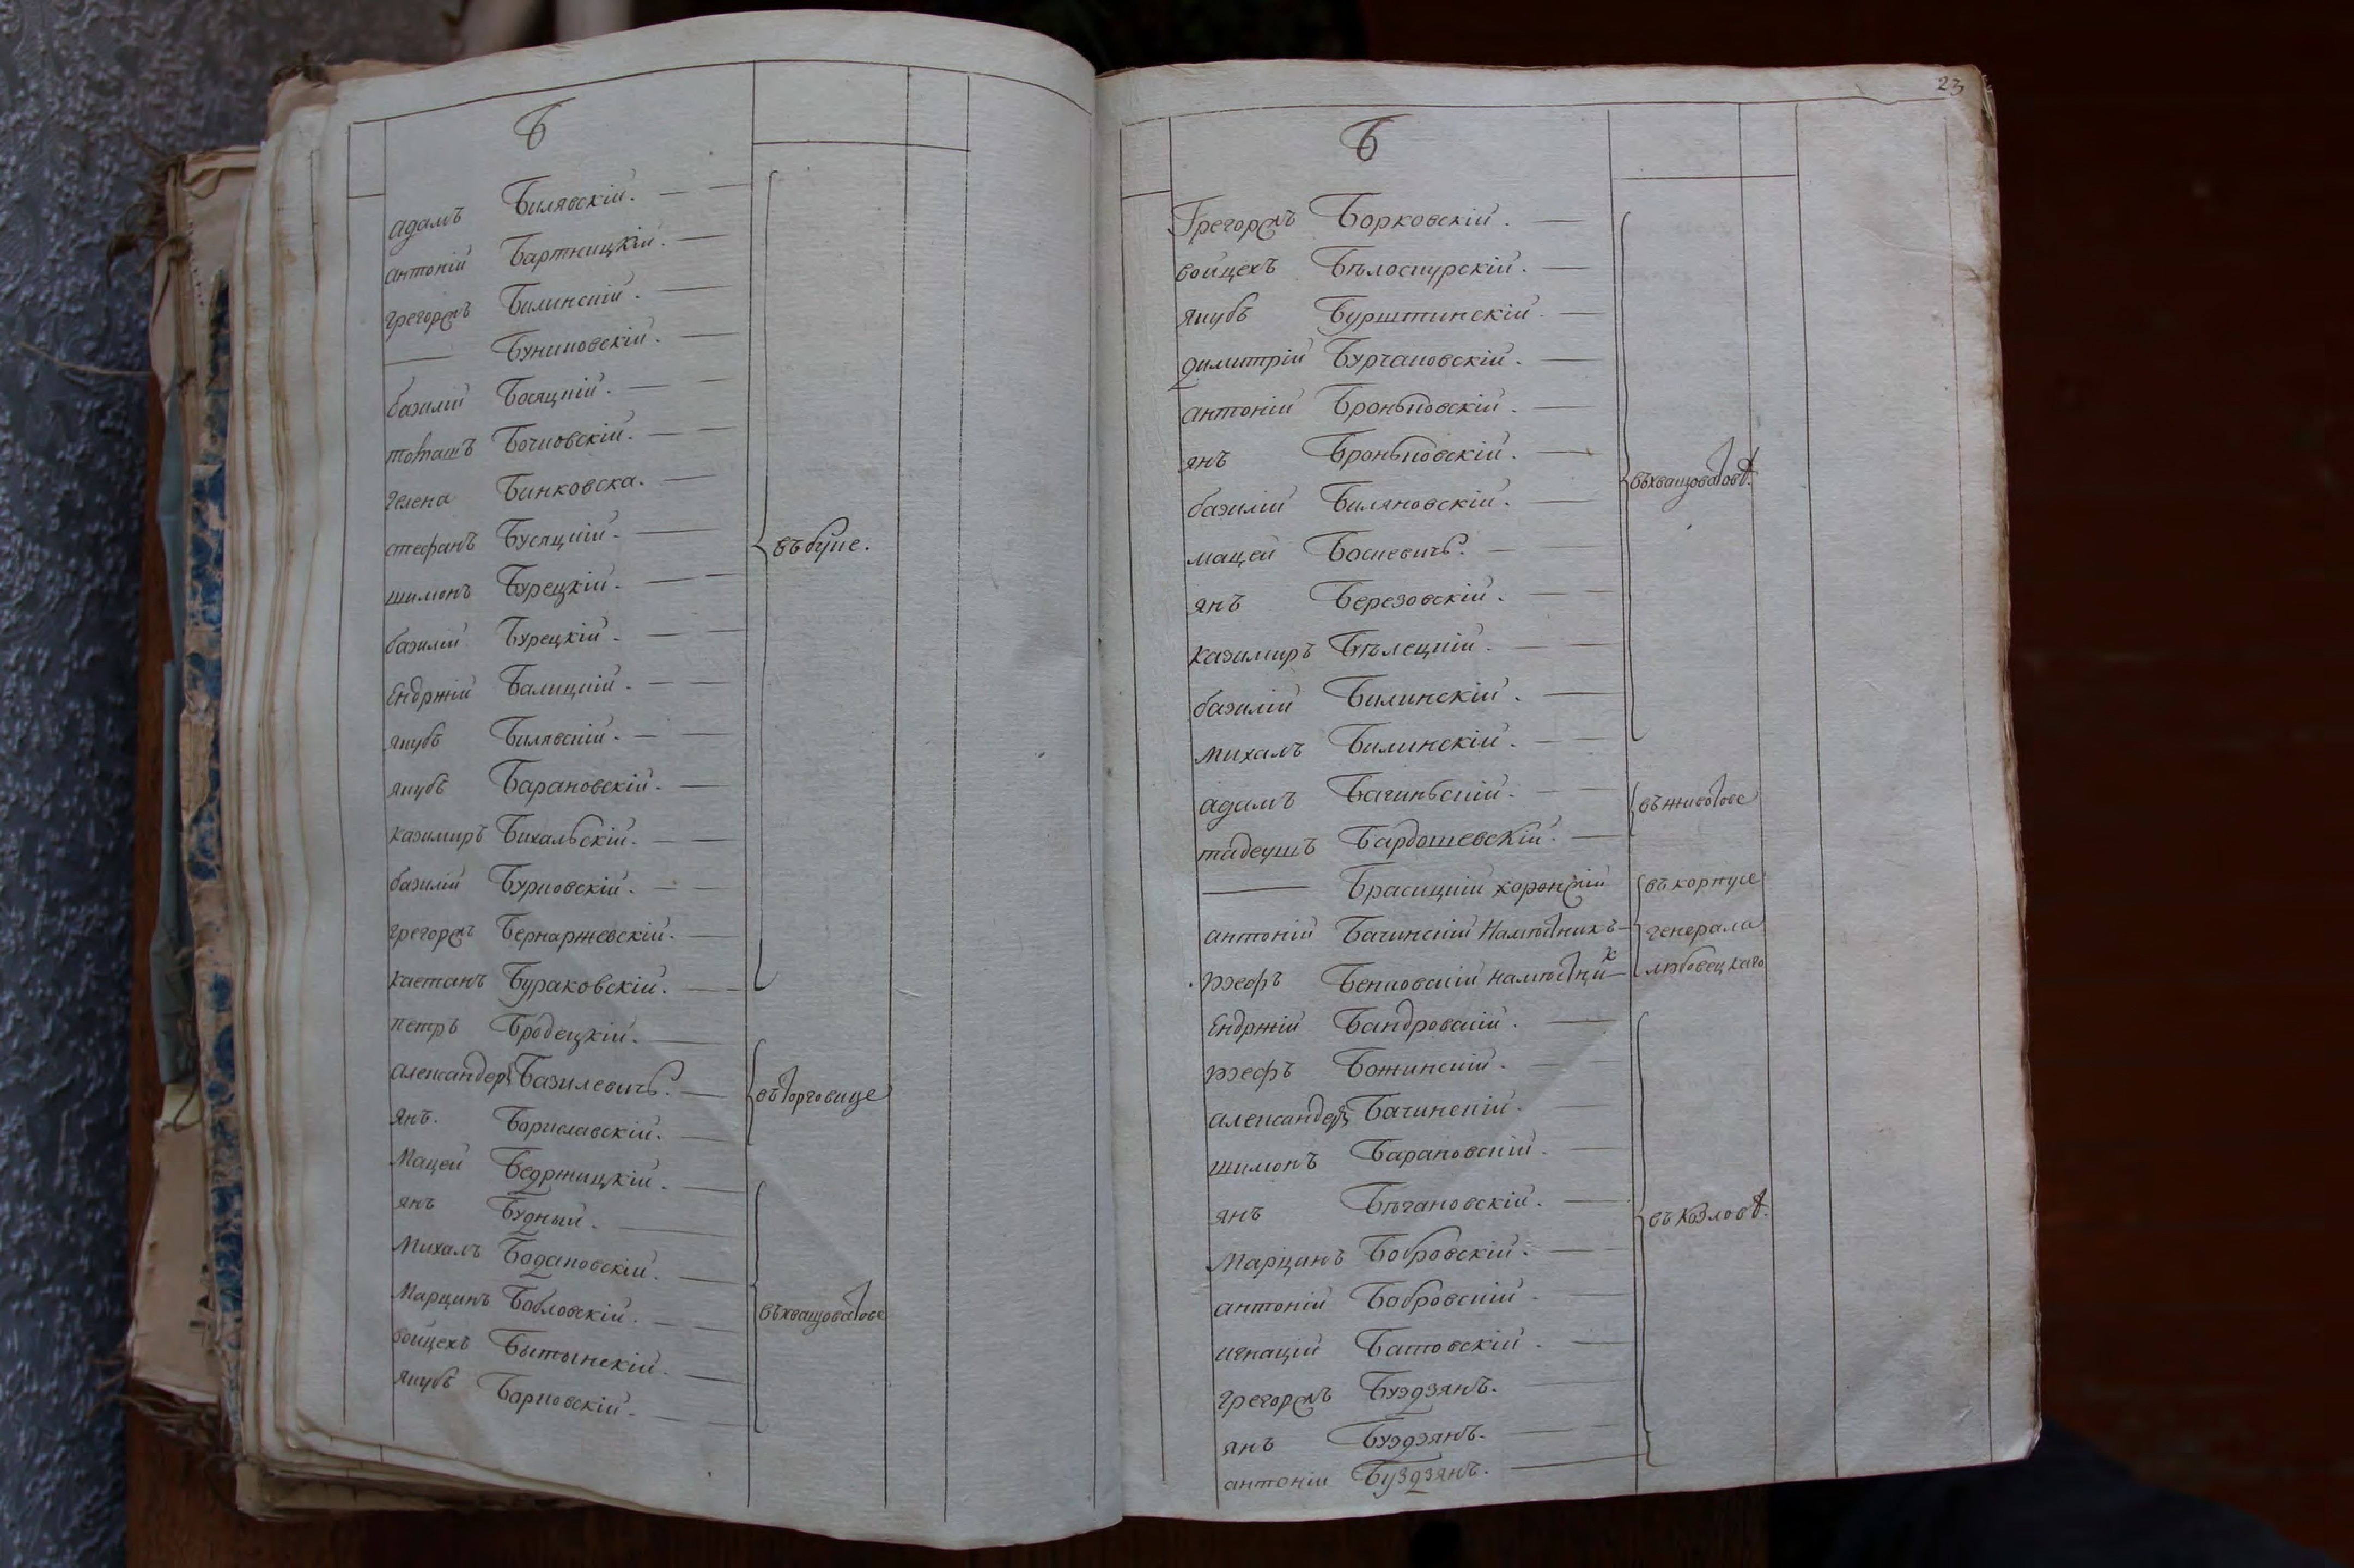 Б
адамъ Билявскій.
антоній Бартницкій.
грегоръ Билинскій.
Буниковскій.
базилій Босяцкій.
томашъ Бочковскій.
гелена Бинковска.
стефанъ Бусяцкій.
шимонъ Бурецкій.
базилій Бурецкій.
Ендржій Балицкій.
якубъ Билявскій.
якубъ Барановскій.
казимиръ Бихальскій.
базилій Бурковскій.
грегоръ Бернаржевскій.
каетанъ Бураковскій.
въ буке.
петръ Бродецкій.
александеръ Базилевичъ.
янъ. Бориславскій.
въ торговице
Мацей Бедржицкій.
янъ Будный.
Михалъ Бодановскій.
Марцинъ Бобловскій.
войцехъ Бытынскій.
якубъ Барковскій.
въ хващоватове
23
Б
Грегоръ Борковскій.
войцехъ Бѣлоскурскій.
якубъ Бурштинскій.
димитрій Бурчаковскій.
антоній Броньковскій.
янъ Броньковскій.
базилій Биляновскій.
мацей Боскевичъ.
янъ Березовскій.
казимиръ Бѣлецкій.
базилій Билинскій.
михалъ Билинскій.
въ хващоватовѣ.
адамъ Бачиньскій.
тадеушъ Бардошевскій.
въ животове
Брасицкій хоронжій
антоній Бачинскій Намѣстникъ
юзефъ Бенковскій намѣстникъ
въ корпусе
генерала
любовецкаго
Ендржій Бандровскій.
юзефъ Божинскій.
александеръ Бачинскій.
шимонъ Барановскій.
янъ Бѣгановскій.
Марцинъ Бобровскій.
антоній Бобровскій.
игнацій Батовскій.
грегоръ Буздзянъ.
янъ Буздзянъ.
антоній Буздзянъ.
въ Козловѣ.